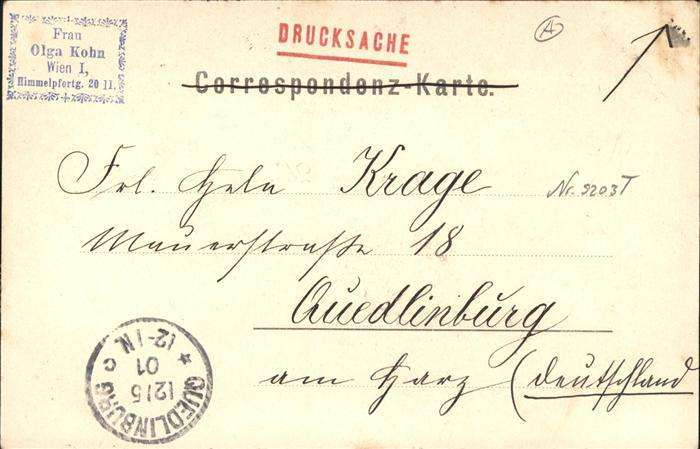 Frau
Olga Kohn
Wien I,
Himmelpfortg. 20 II.
DRUCKSACHE
A
Correspondenz-Karte.
Frl. Hela Krage
Nr. 9203T
Mauerstraße 18
Quedlinburg
am Harz (Deutschland
QUEDLINBURG
12/5
01
* 12-1N. c